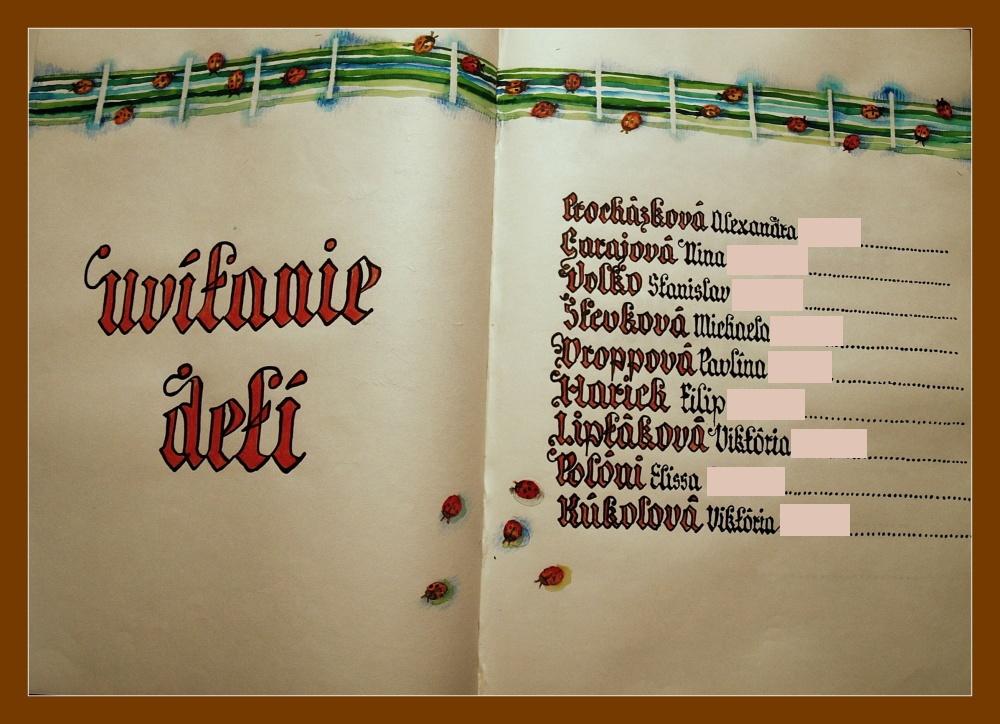 uvítanie
detí
Procházková Alexandra
Garajová Nina
Voľko Stanislav
Števková Michaela
Vroppová Pavlína
Hariek Filip
Liptáková Viktória
Polóni Elissa
Kúkolová Viktória